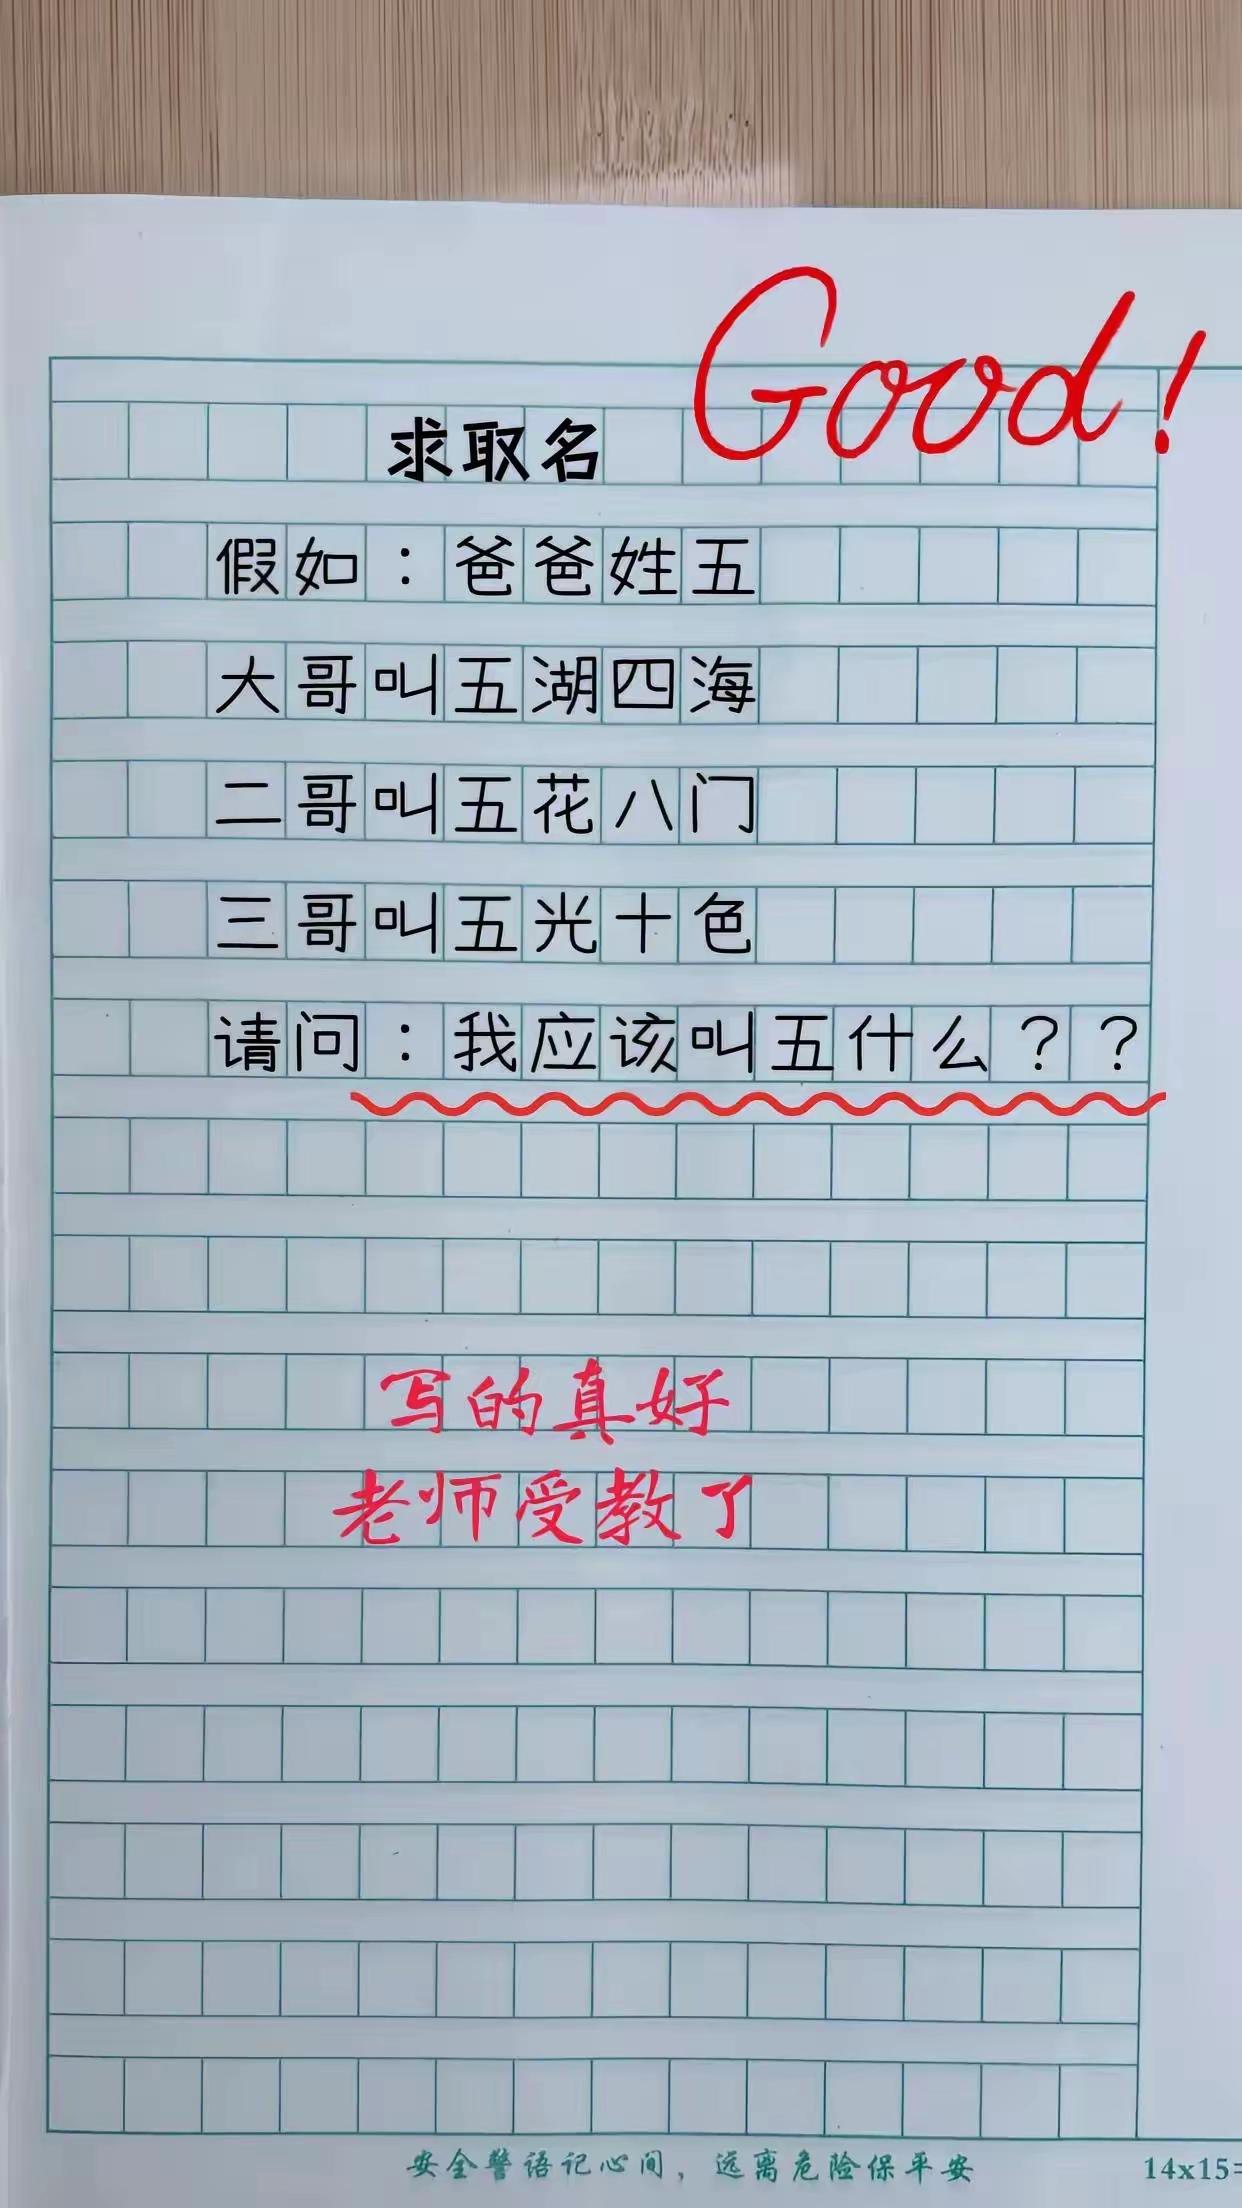 Good!
求取名
假如：爸爸姓五
大哥叫五湖四海
二哥叫五花八门
三哥叫五光十色
请问：我应该叫五什么？？
写的真好
老师受教了
安全警语记心间，远离危险保平安
14x15=